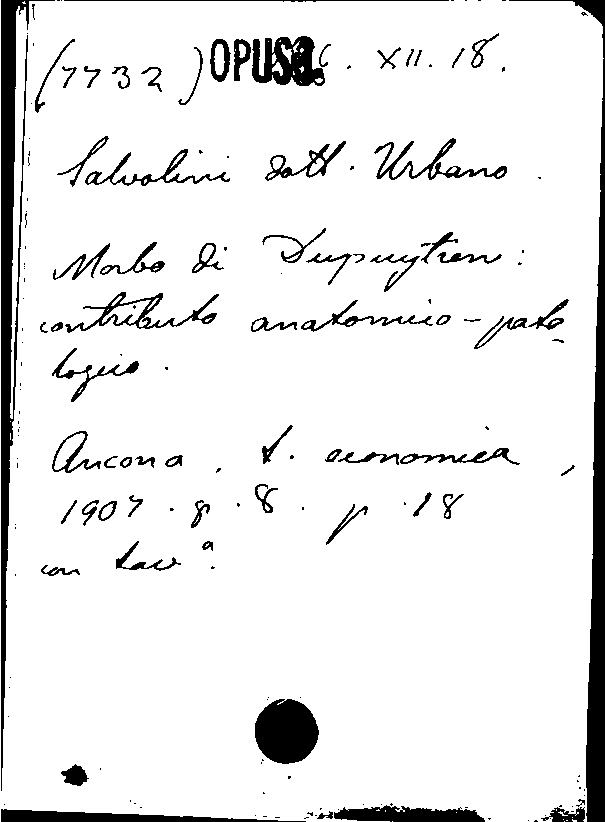 (7732) OPUSC. XII. 18.
Salvolini dott. Urbano.
Morbo di Dupuytren:
contributo anatomico-pato
logico.
Ancona, t. economica,
1907. 8. p. 18
con tavª.